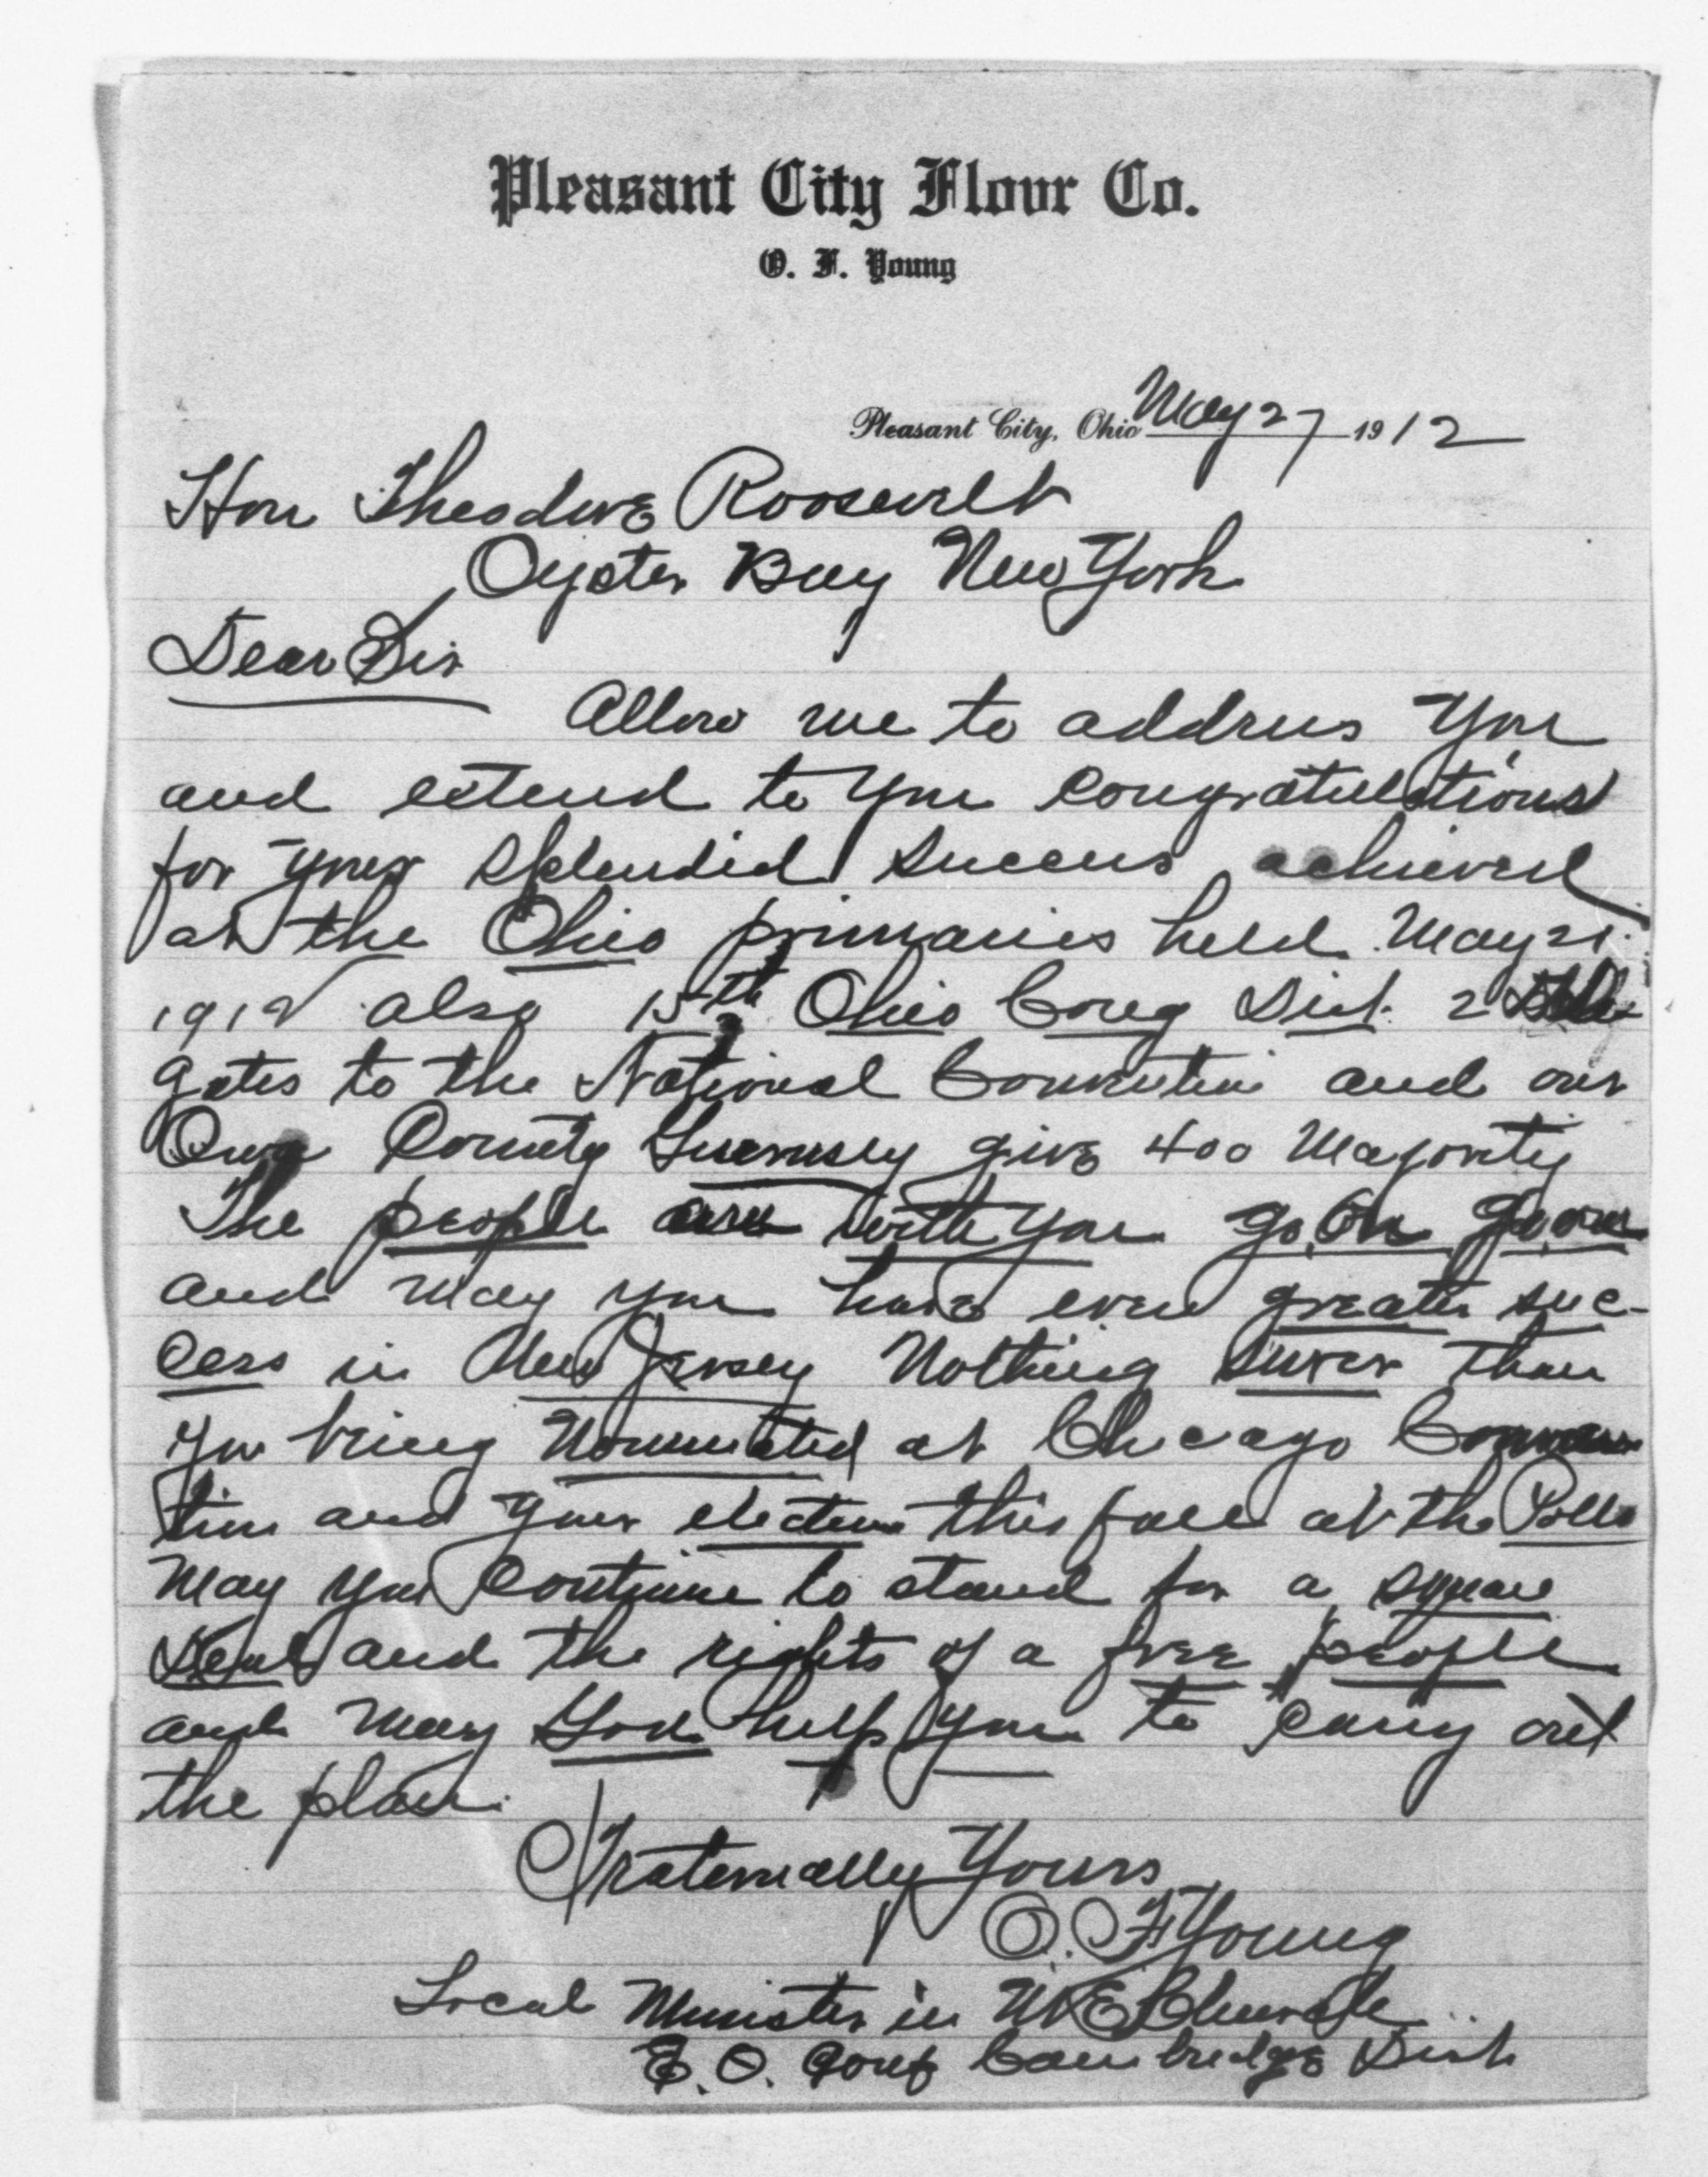 Pleasant City Flour Co.
O. F. Young
Pleasant City, Ohio May 27 1912
Hon Theodore Roosevelt
Oyster Bay New York
Dear Sir
Allow me to address you
and extend to you congratulations
for your splendid success achieved
at the Ohio primaries held May 21
1912 also 15th Ohio Cong Dist. 2 Dele
gates to the National Convention and our
Own County Guernsey give 400 Majority
The people are with you go on go on
and may you have even greater suc-
cess in New Jersey Nothing surer than
you being Nominated at Chicago Conven
tion and your election this fall at the Polls
May you continue to stand for a square
Deal and the rights of a free people
and may God help you to carry out
the plan.
Fraternally Yours
O. F. Young
Local Minister in M E Church
E. O. Conf Cambridge Dist